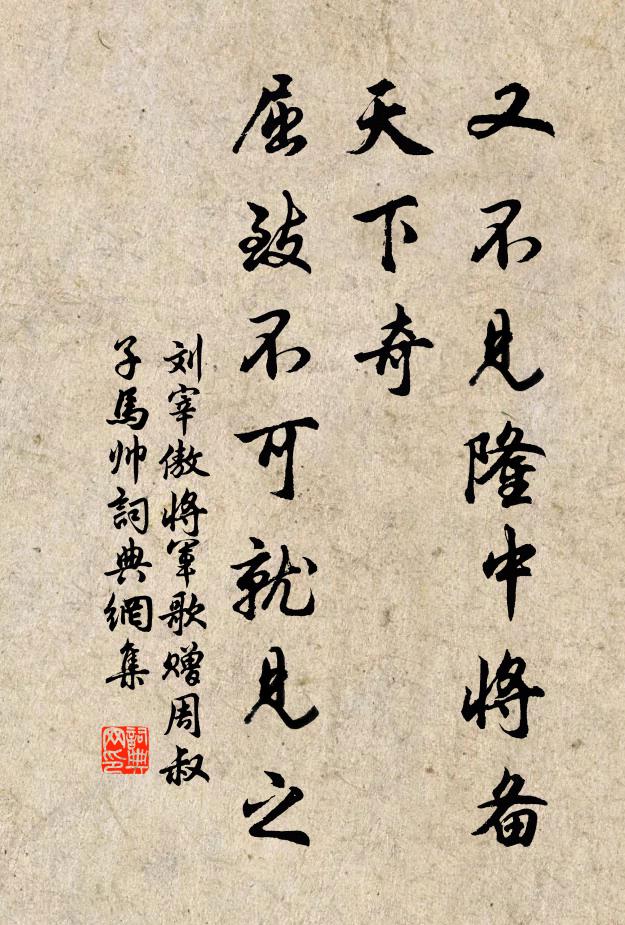 又不见隆中将备
天下奇
屈致不可就见之
刘宰傲将军歌赠周叔
子马帅詞典網集
詞典
网印